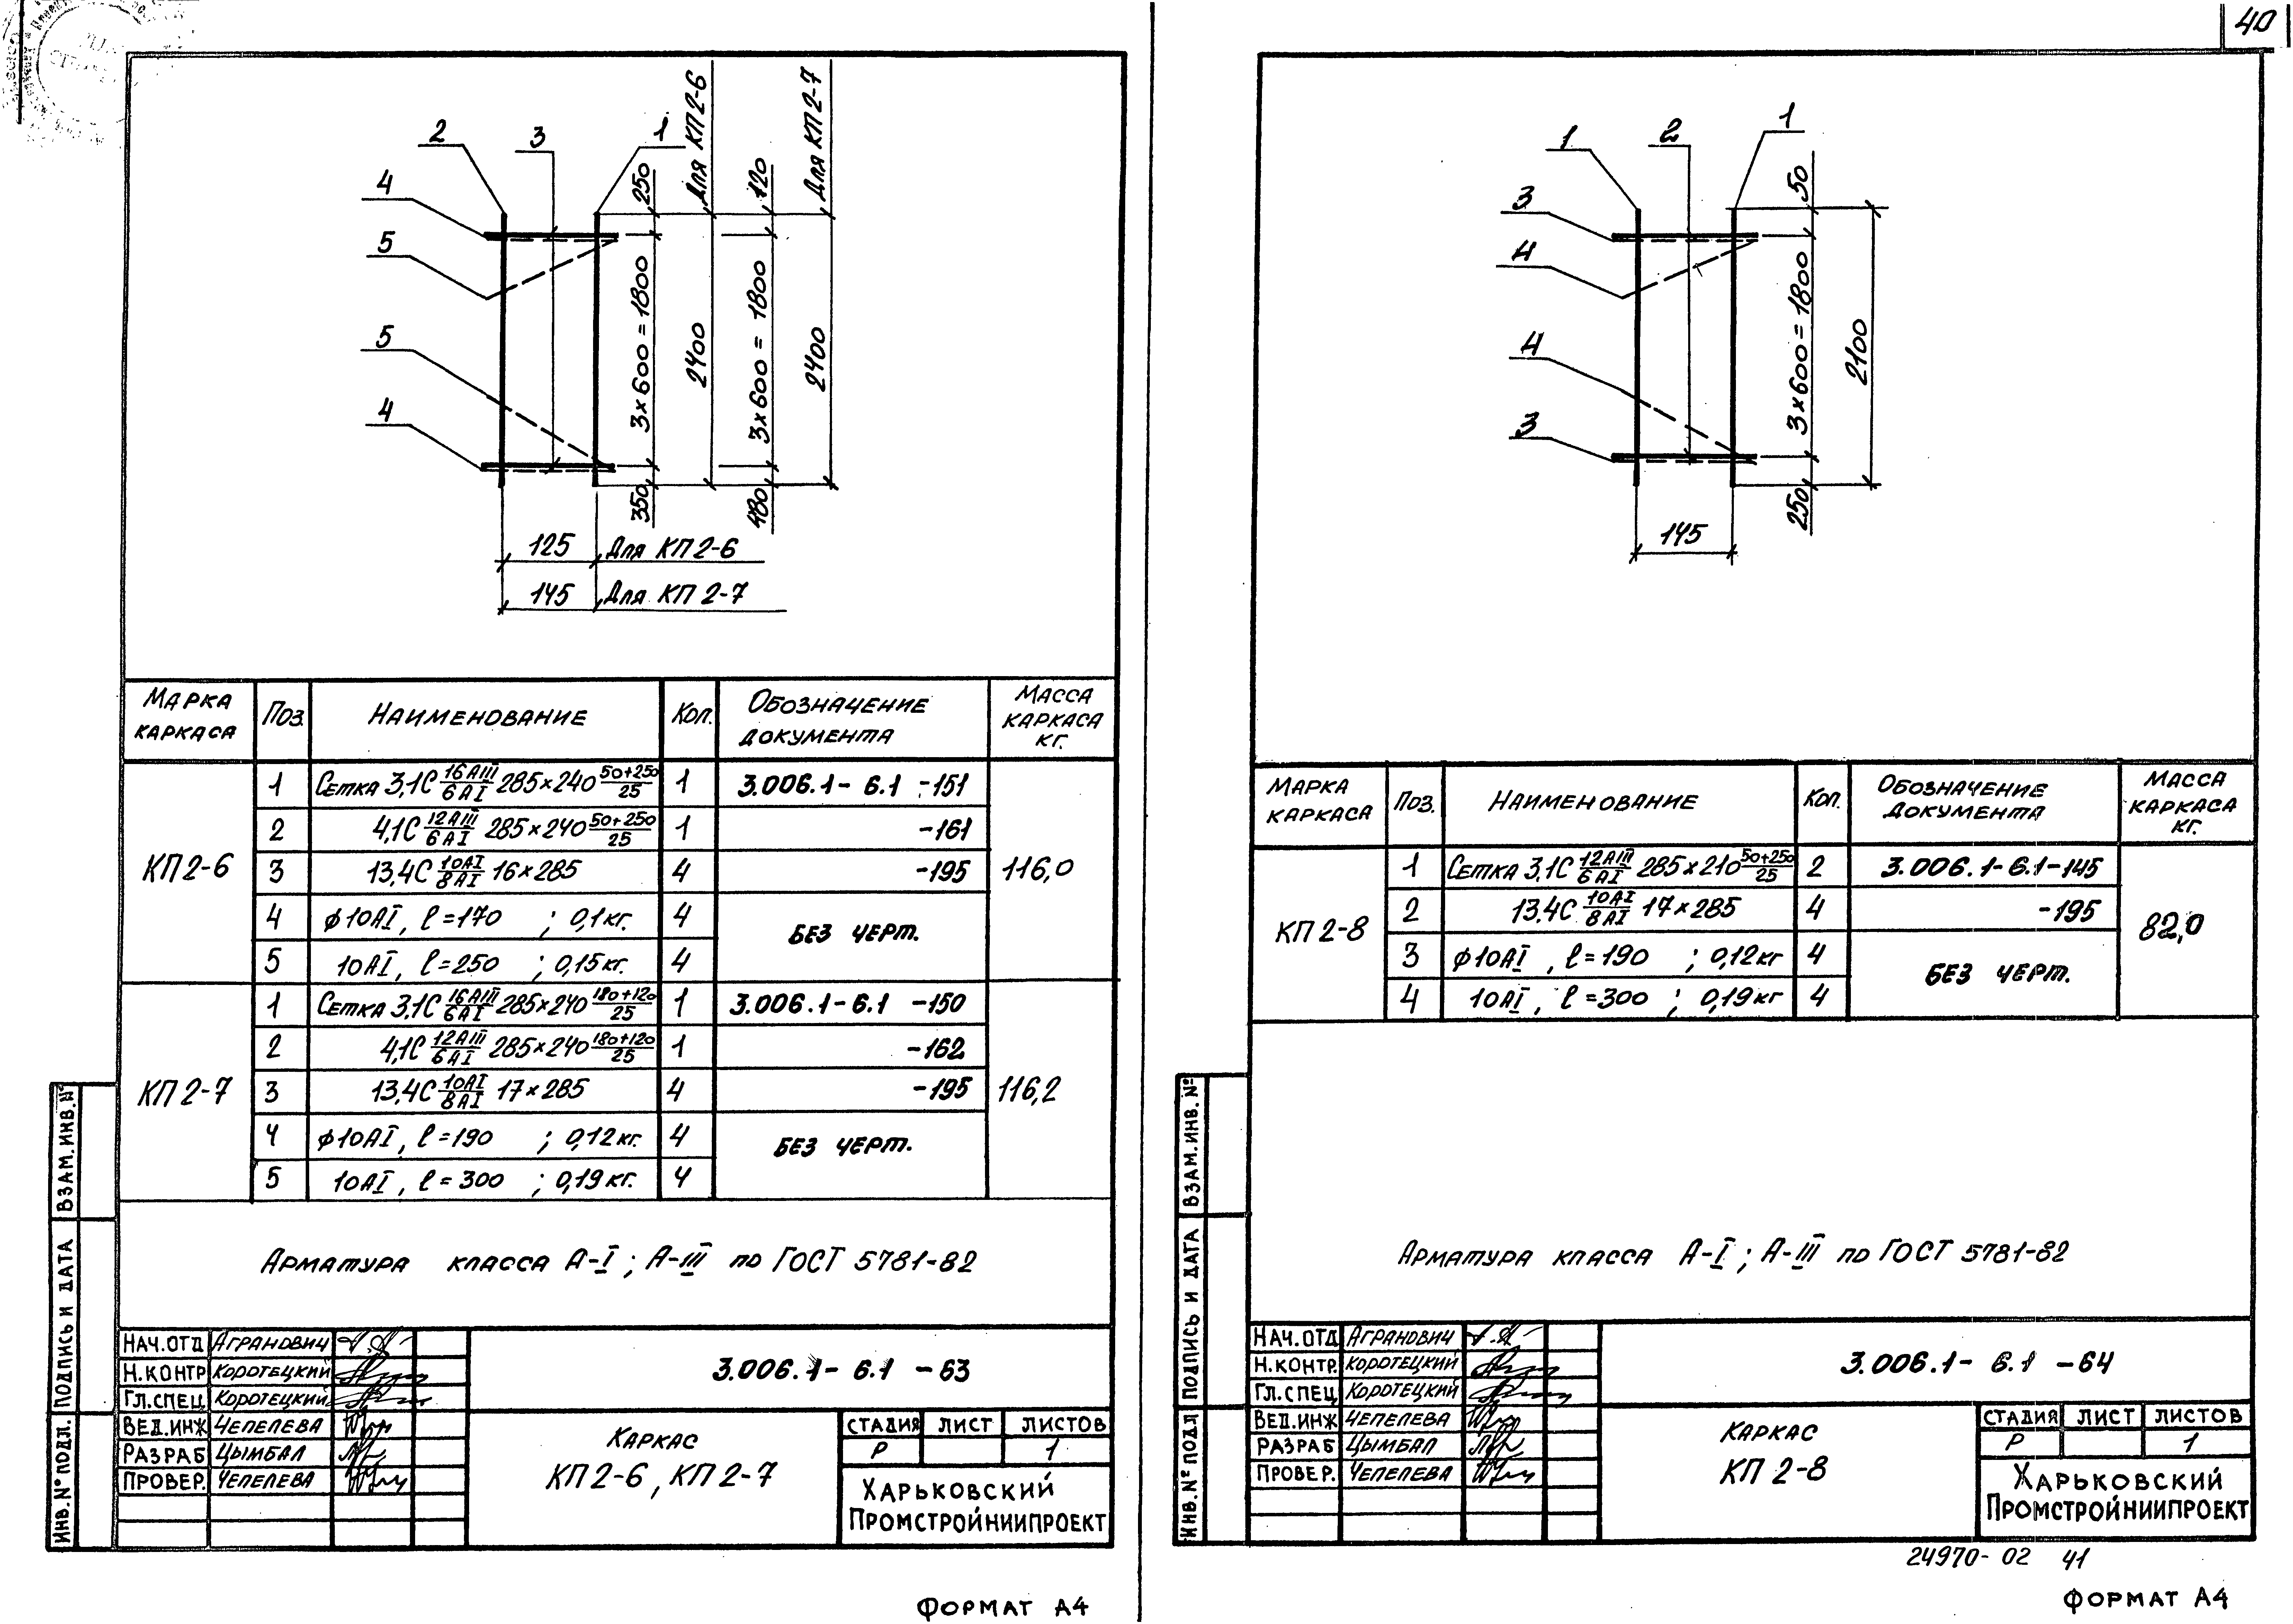 40
2
3
1
4
5
5
4
250
3×600=1800
350
2400
Для КП2-6
120
3×600=1800
480
2400
Для КП2-7
125 Для КП2-6
145 Для КП2-7
Марка каркаса Поз. Наименование Кол. Обозначение документа Масса каркаса кг.
КП2-6 116,0
1 Сетка 3,1С 16АIII/6АI 285×240 50+250/25 1 3.006.1-6.1-151
2 4,1С 12АIII/6АI 285×240 50+250/25 1 -161
3 13,4С 10АI/8АI 16×285 4 -195
4 ф10АI, l=170 ; 0,1кг. 4 Без черт.
5 10АI, l=250 ; 0,15кг. 4
КП2-7 116,2
1 Сетка 3,1С 16АIII/6АI 285×240 180+120/25 1 3.006.1-6.1-150
2 4,1С 12АIII/6АI 285×240 180+120/25 1 -162
3 13,4С 10АI/8АI 17×285 4 -195
4 ф10АI, l=190 ; 0,12кг. 4 Без черт.
5 10АI, l=300 ; 0,19кг. 4
Арматура класса А-I; А-III по ГОСТ 5781-82
Взам.инв.№
Подпись и дата
Инв.№подл.
Нач.отд Агранович
Н.контр Коротецкий
Гл.спец Коротецкий
Вед.инж Чепелева
Разраб Цымбал
Провер. Чепелева
3.006.1-6.1-63
Каркас
КП2-6, КП2-7
Стадия Лист Листов
Р 1
Харьковский
Промстройниипроект
Формат А4
1
2
1
3
4
4
3
50
3×600=1800
250
2100
145
Марка каркаса Поз. Наименование Кол. Обозначение документа Масса каркаса кг.
КП2-8 82,0
1 Сетка 3,1С 12АIII/6АI 285×210 50+250/25 2 3.006.1-6.1-145
2 13,4С 10АI/8АI 17×285 4 -195
3 ф10АI, l=190 ; 0,12кг 4 Без черт.
4 10АI, l=300 ; 0,19кг 4
Арматура класса А-I; А-III по ГОСТ 5781-82
Взам.инв.№
Подпись и дата
Инв.№подл
Нач.отд Агранович
Н.контр. Коротецкий
Гл.спец Коротецкий
Вед.инж Чепелева
Разраб Цымбал
Провер. Чепелева
3.006.1-6.1-64
Каркас
КП2-8
Стадия Лист Листов
Р 1
Харьковский
Промстройниипроект
24970-02 41
Формат А4